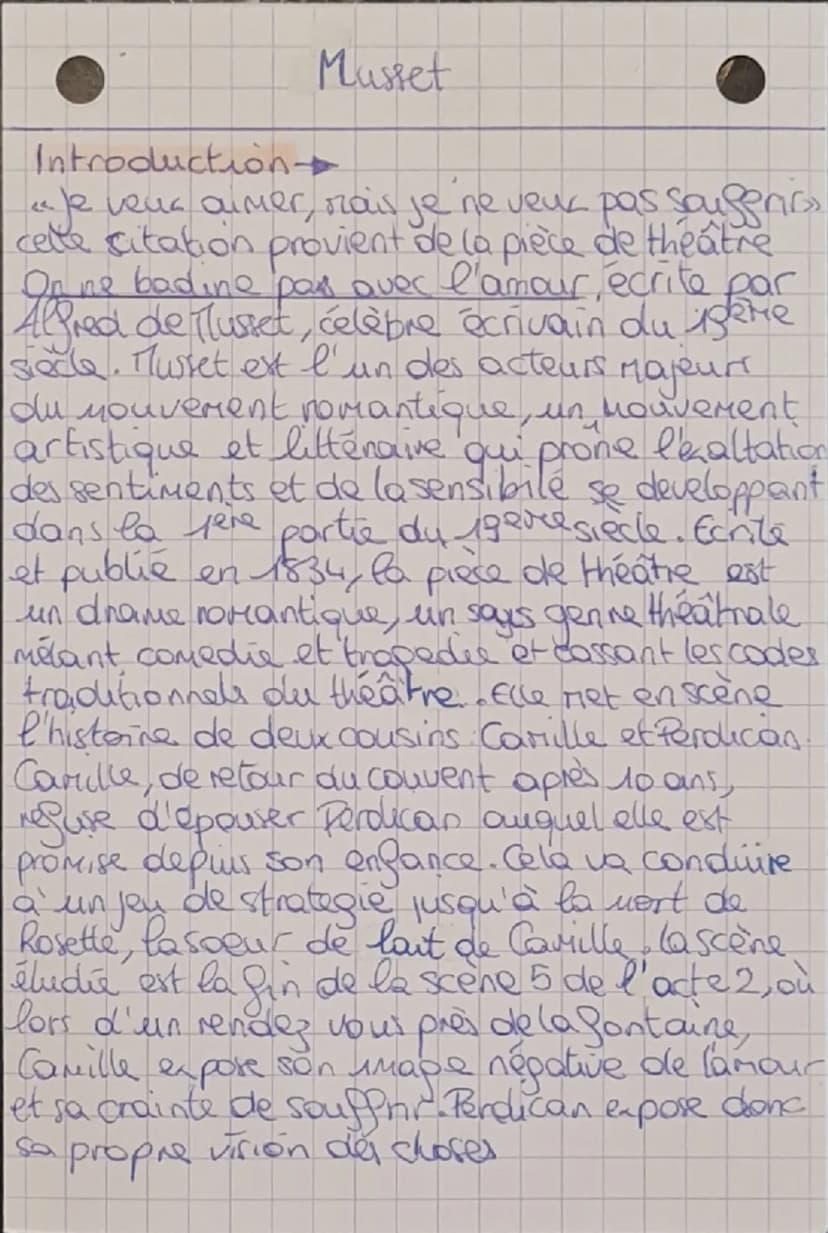 Musset
Introduction →
"Je veux aimer, mais je ne veux pas souffrir»
cette citation provient de la pièce de théâtre
On ne badine pas avec l'amour, écrite par
Alfred de Musset, célèbre écrivain du 19ème
siècle. Musset est l'un des acteurs majeurs
du mouvement romantique, un mouvement
artistique et littéraire qui prône l'exaltation
des sentiments et de la sensibilé se developpant
dans la 1ère partie du 19eme siècle. Ecrite
et publié en 1834, la pièce de théâtre est
un drame romantique, un sous genre théâtrale
mêlant comedie et tragedie et cassant les codes
traditionnels du théâtre. Elle met en scène
l'histoire de deux cousins : Camille et Perdican.
Camille, de retour du couvent après 10 ans,
refuse d'épouser Perdican auquel elle est
promise depuis son enfance. Cela va conduire
à un jeu de strategie jusqu'à la mort de
Rosette, la soeur de lait de Camille. La scène
étudié est la fin de la scène 5 de l'acte 2, où
lors d'un rendez vous près de la fontaine,
Camille expose son image négative de l'amour
et sa crainte de souffrir. Perdican expose donc
sa propre vision des choses